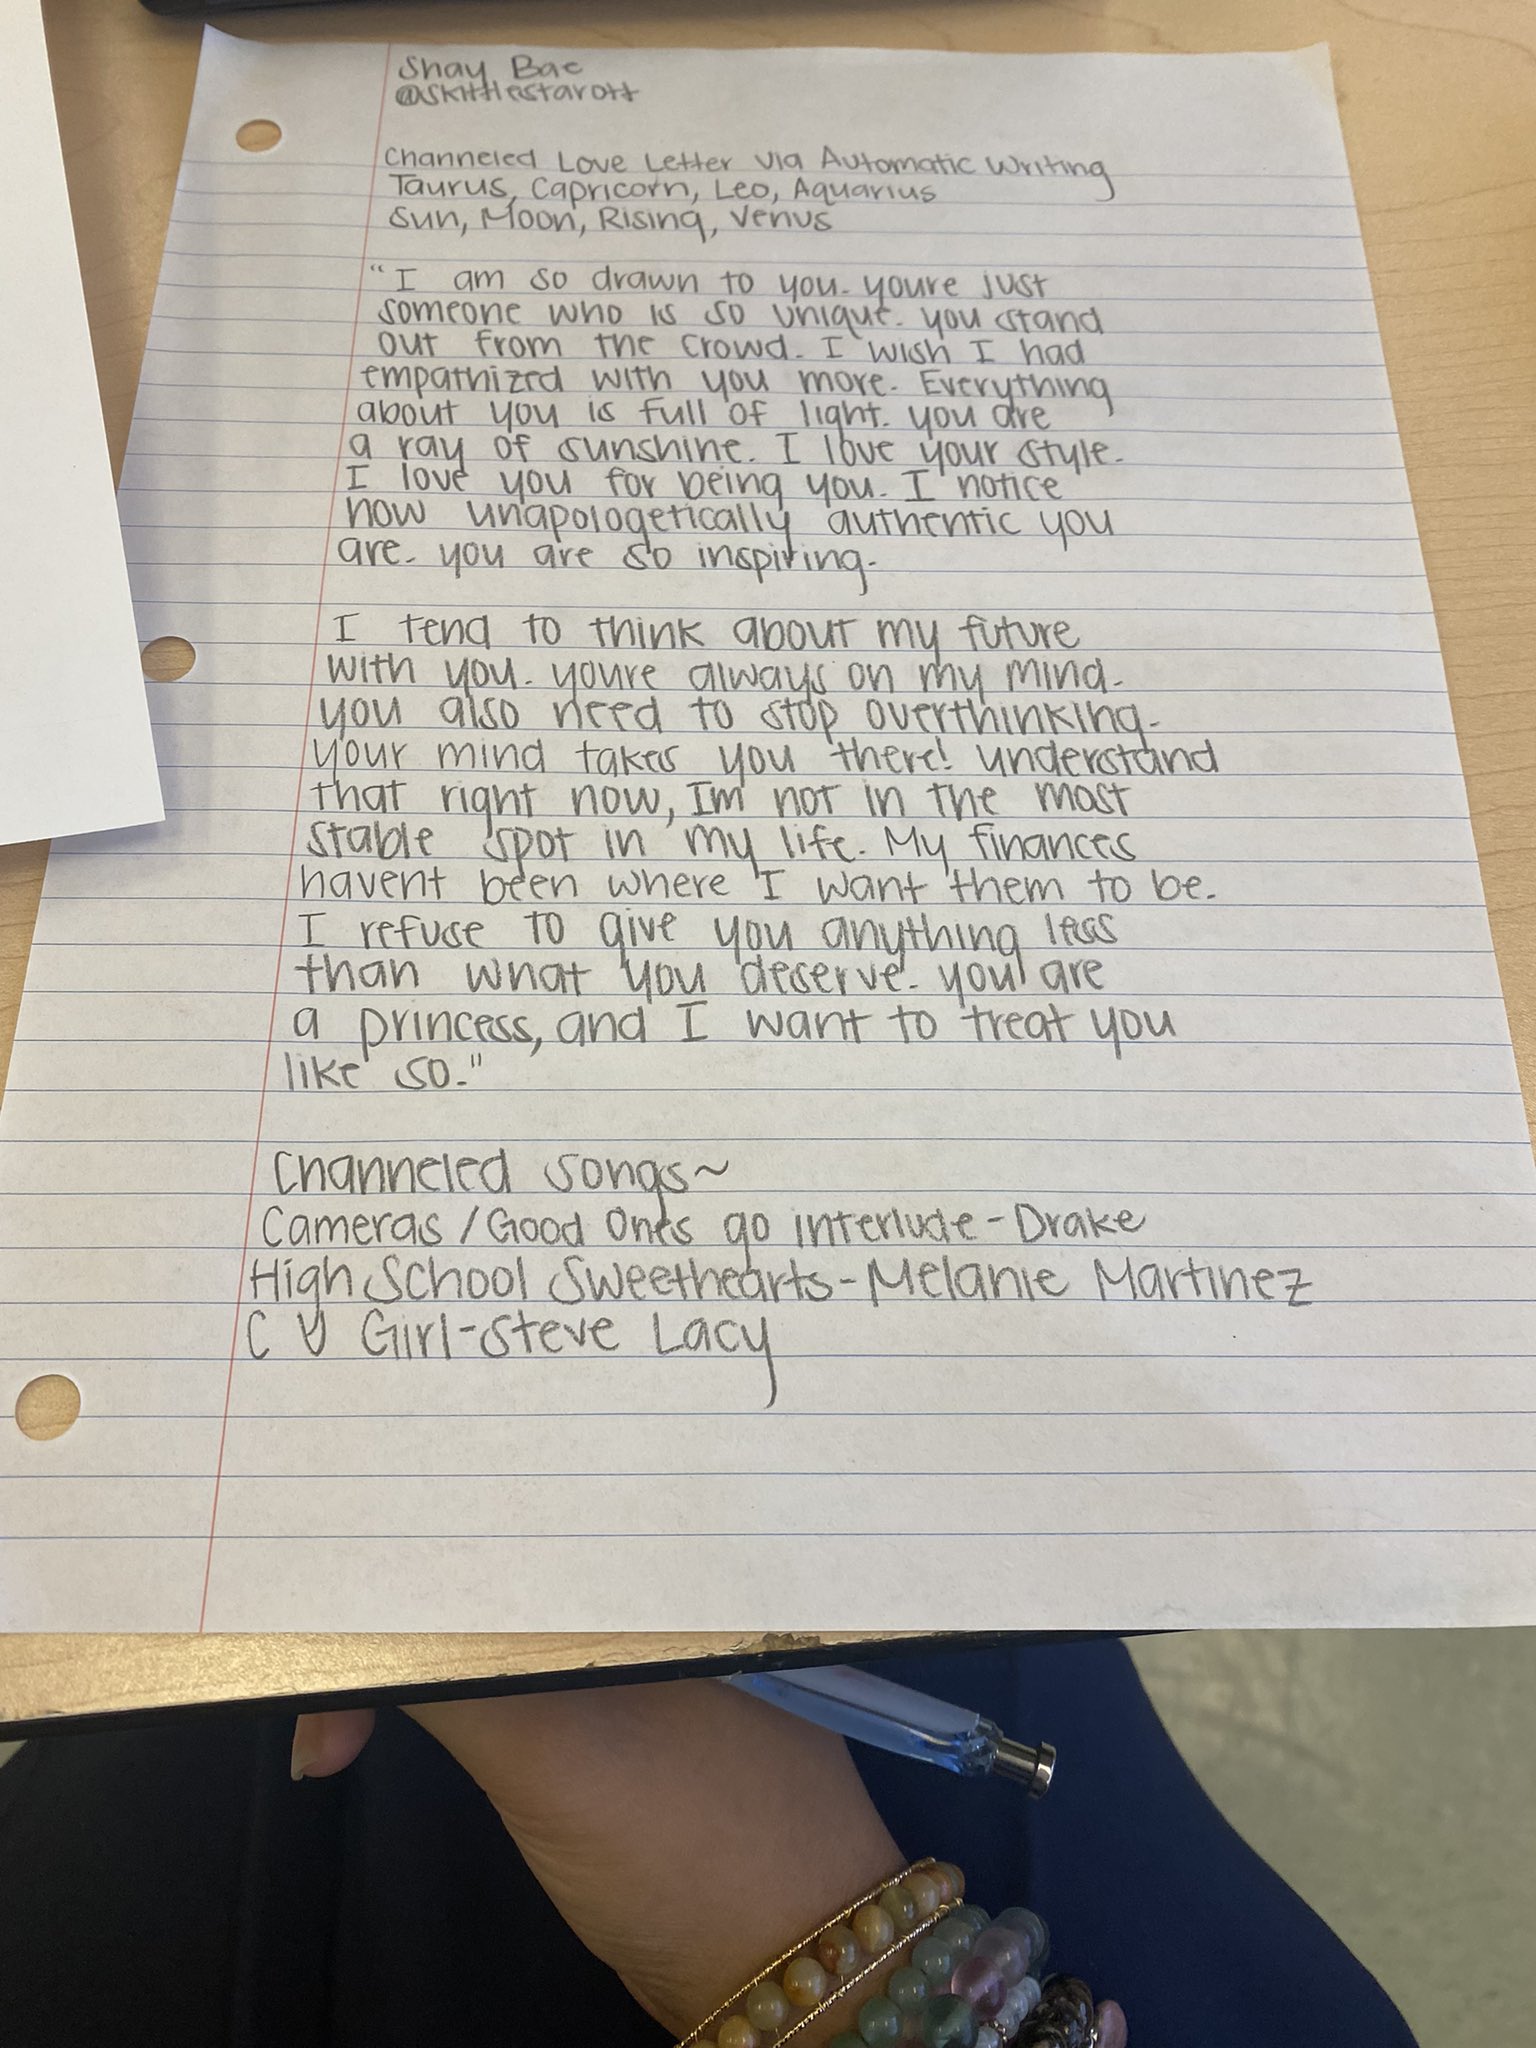 Shay Bae
@skittlestarott
Channeled Love Letter via Automatic Writing
Taurus, Capricorn, Leo, Aquarius
Sun, Moon, Rising, Venus
"I am so drawn to you. youre just
someone who is so unique. you stand
out from the crowd. I wish I had
empathized with you more. Everything
about you is full of light. you are
a ray of sunshine. I love your style.
I love you for being you. I notice
how unapologetically authentic you
are. you are so inspiring.
I tend to think about my future
with you. youre always on my mind.
you also need to stop overthinking.
your mind takes you there! understand
that right now, Im not in the most
stable spot in my life. My finances
havent been where I want them to be.
I refuse to give you anything less
than what you deserve. you are
a princess, and I want to treat you
like so."
Channeled songs~
Cameras/Good Ones go interlude-Drake
High School Sweethearts-Melanie Martinez
C U Girl-Steve Lacy